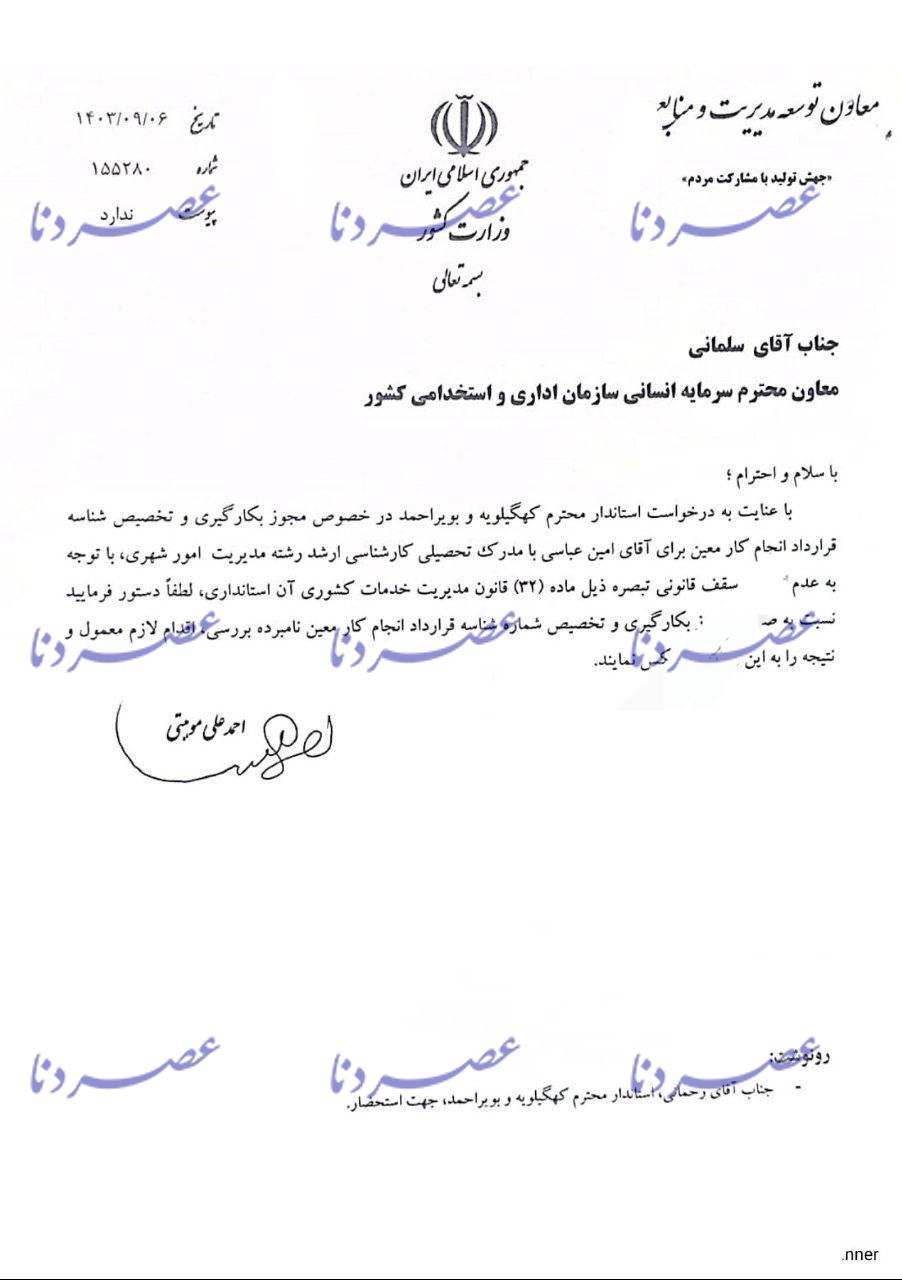 معاون توسعه مدیریت و منابع
«جهش تولید با مشارکت مردم»
جمهوری اسلامی ایران
وزارت کشور
بسمه تعالی
تاریخ ۱۴۰۳/۰۹/۰۶
شماره ۱۵۵۲۸۰
پیوست ندارد
عصر دنا عصر دنا عصر دنا
جناب آقای سلمانی
معاون محترم سرمایه انسانی سازمان اداری و استخدامی کشور
با سلام و احترام ؛
با عنایت به درخواست استاندار محترم کهگیلویه و بویراحمد در خصوص مجوز بکارگیری و تخصیص شناسه
قرارداد انجام کار معین برای آقای امین عباسی با مدرک تحصیلی کارشناسی ارشد رشته مدیریت امور شهری، با توجه
به عدم سقف قانونی تبصره ذیل ماده (۳۲) قانون مدیریت خدمات کشوری آن استانداری، لطفاً دستور فرمایید
نسبت به صد بکارگیری و تخصیص شماره شناسه قرارداد انجام کار معین نامبرده بررسی، اقدام لازم معمول و
نتیجه را به این کس نمایند.
عصر دنا عصر دنا عصر دنا
احمدعلی موهبتی
رونوشت:
- جناب آقای رحمانی، استاندار محترم کهگیلویه و بویراحمد، جهت استحضار.
عصر دنا عصر دنا عصر دنا
nner.